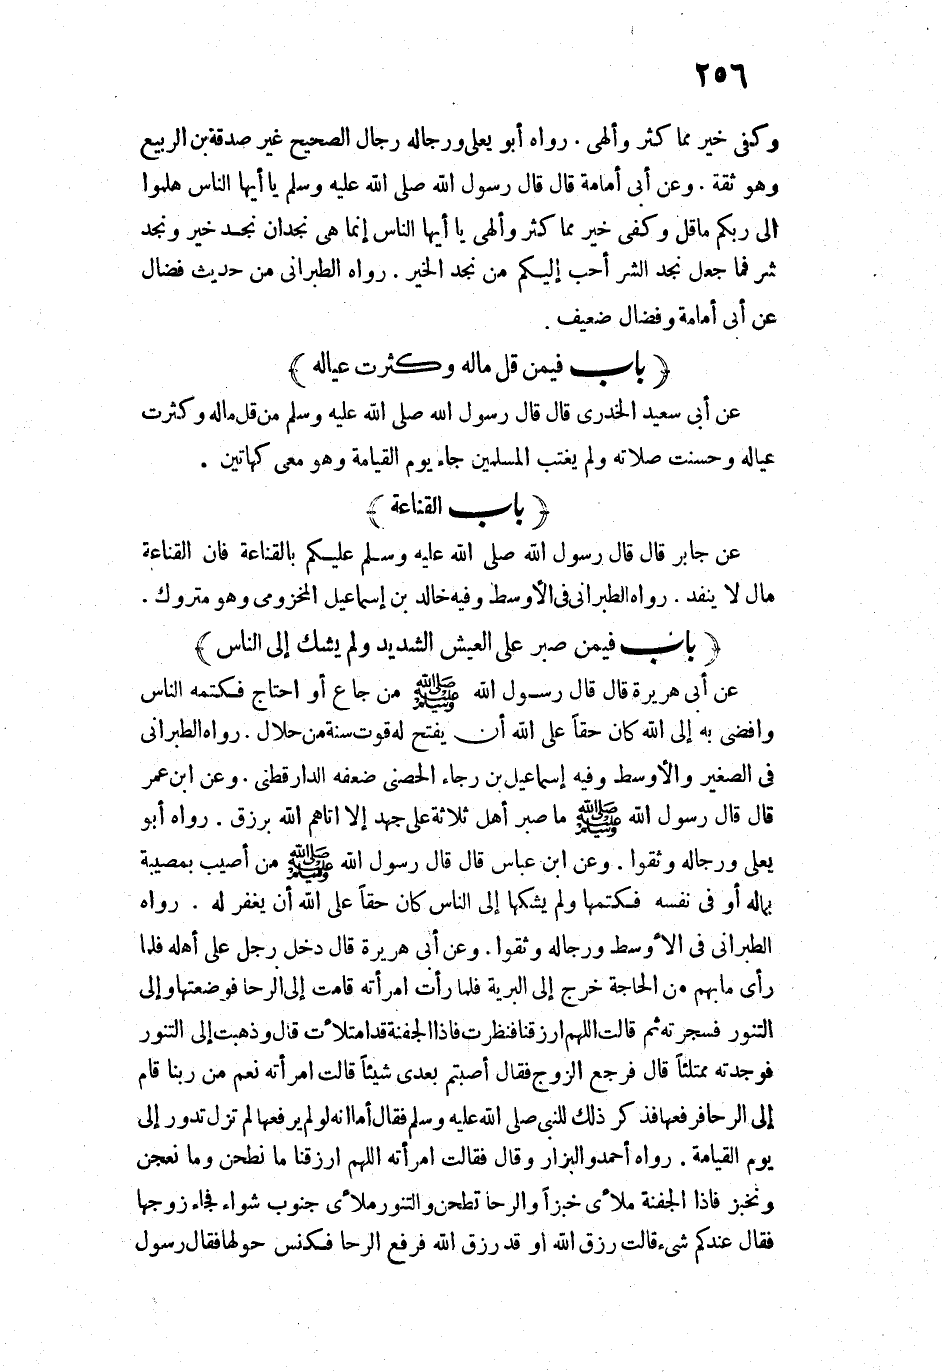 ٢٥٦
وكفى خير مما كثر وألهى . رواه أبو يعلى ورجاله رجال الصحيح غير صدقة بن الربيع
وهو ثقة . وعن أبى أمامة قال قال رسول الله صلى الله عليه وسلم يا أيها الناس هلموا
الى ربكم ماقل وكفى خير مما كثر وألهى يا أيها الناس إنما هى نجدان نجد خير ونجد
شر فما جعل نجد الشر أحب إليكم من نجد الخير . رواه الطبرانى من حديث فضال
عن أبى أمامة وفضال ضعيف .
﴿ باب فيمن قل ماله وكثرت عياله ﴾
عن أبى سعيد الخدرى قال قال رسول الله صلى الله عليه وسلم من قل ماله وكثرت
عياله وحسنت صلاته ولم يغتب المسلمين جاء يوم القيامة وهو معى كهاتين .
﴿ باب القناعة ﴾
عن جابر قال قال رسول الله صلى الله عليه وسلم عليكم بالقناعة فان القناعة
مال لا ينفد . رواه الطبرانى فى الأوسط وفيه خالد بن إسماعيل المخزومى وهو متروك .
﴿ باب فيمن صبر على العيش الشديد ولم يشك إلى الناس ﴾
عن أبى هريرة قال قال رسول الله ﷺ من جاع أو احتاج فكتمه الناس
وافضى به إلى الله كان حقاً على الله أن يفتح له قوت سنة من حلال . رواه الطبرانى
فى الصغير والأوسط وفيه إسماعيل بن رجاء الحصنى ضعفه الدارقطنى . وعن ابن عمر
قال قال رسول الله ﷺ ما صبر أهل ثلاثة على جهد إلا اتاهم الله برزق . رواه أبو
يعلى ورجاله وثقوا . وعن ابن عباس قال قال رسول الله ﷺ من أصيب بمصيبة
بماله أو فى نفسه فكتمها ولم يشكها إلى الناس كان حقاً على الله أن يغفر له . رواه
الطبرانى فى الأوسط ورجاله وثقوا . وعن أبى هريرة قال دخل رجل على أهله فلما
رأى مابهم من الحاجة خرج إلى البرية فلما رأت امرأته قامت إلى الرحا فوضعتها وإلى
التنور فسجرته ثم قالت اللهم ارزقنا فنظرت فاذا الجفنة قد امتلأت قال وذهبت إلى التنور
فوجدته ممتلئاً قال فرجع الزوج فقال أصبتم بعدى شيئاً قالت امرأته نعم من ربنا قام
إلى الرحا فرفعها فذكر ذلك للنبى صلى الله عليه وسلم فقال أما انه لو لم يرفعها لم تزل تدور إلى
يوم القيامة . رواه أحمد والبزار وقال فقالت امرأته اللهم ارزقنا ما نطحن وما نعجن
ونخبز فاذا الجفنة ملأى خبزاً والرحا تطحن والتنور ملأى جنوب شواء فجاء زوجها
فقال عندكم شىء قالت رزق الله أو قد رزق الله فرفع الرحا فكنس حولها فقال رسول